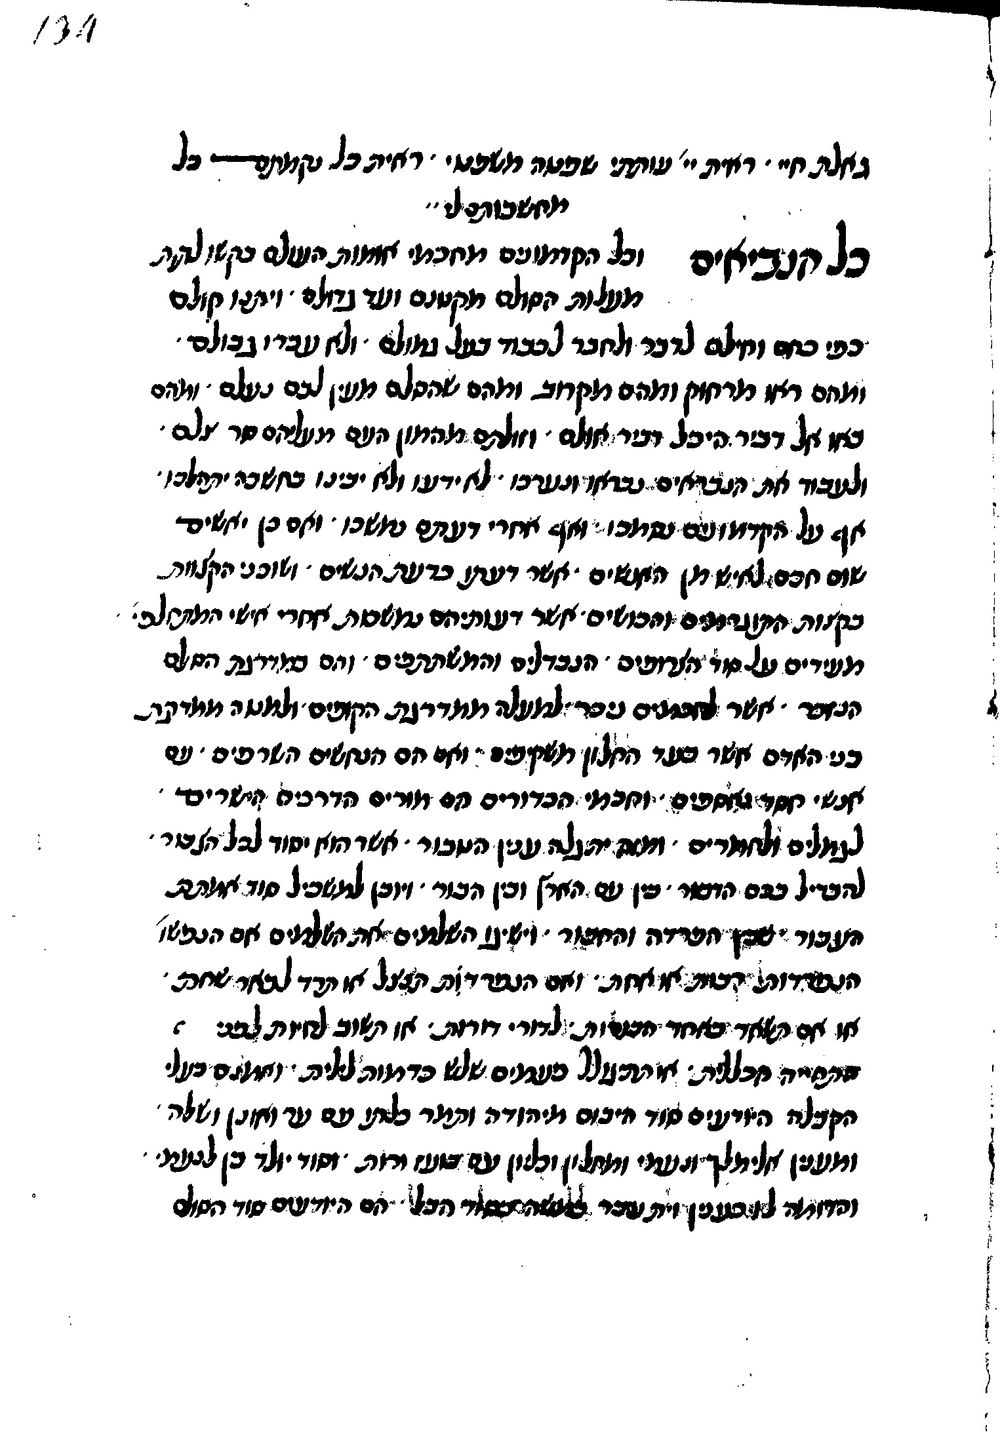 134
גאלת חיי · ראית יי׳ עותתי שפטה משפטי · ראית כל נקמתם כל
מחשבותם לי
כל הנביאים וכל הקדמונים מחכמי אומות העולם בקשו לקחת
מעלות הסולם מקטנם ועד גדולם · ויתנו קולם
כפי כחם וחילם לדבר ולחבר לכבוד בעל גמולם · ולא עברו גבולם ·
ומהם ראו מרחוק ומהם מקרוב ומהם שהסלם מעין לבם נעלם · ומהם
באו אל דביר היכל דביר אולם · וזולתם מהמון העם מעליהם סר צלם ·
ולעבוד את הנבראים נבראו ונערכו · לא ידעו ולא יבינו בחשכה יתהלכו ·
אף על הקדמונים נסמכו · ואף אחרי דעתם נמשכו · ואם כן יאשים
שום חכם לאיש מן האנשים · אשר דעתו כדעת הנשים · ושוכני הקצוות
בקצות התוגרמים והכושים · אשר דעותיהם נמשכות אחרי אישי
מעידים על סוד הצרופים · הנבדלים והמשתתפים · והם במדרגת הסלם
הנזכר · אשר לחכמים ניכר · למעלה ממדרגת הקופים · ולמטה ממדרגת
בני האדם אשר בעד החלון משקיפים · ואם הם הנחשים השרפים · עם
אנשי חסד נאספים · וחכמי הכדורים הם מורים הדרכים הישרים
לגמלים ולחמרים · ומשם יתגלה ענין העבור · אשר הוא יסוד לכל הצבור ·
להבדיל בבם הדבור · בין עם הארץ ובין הבור · ויוכן למשכיל סוד אמתת
העבור · שבין הפרדה והחבור · וישיגו השלמים את השלמים אם הנפשו׳
הנפרדות רבות או אחת · ואם הנפרדות תנצל או תרד לבאר שחת ·
או אם תשאר באחד הכתות לדורי דורות · או תשוב לחיות לפני
התחייה הכללית · או תתגלגל פעמים שלש בדמות לילית · ואמנם בעלי
הקבלה היודעים סוד חיבום מיהודה ותמר כלתו עם ער ואונן ושלה ·
ומענין אלימלך ונעמי ומחלון וכליון עם בועז ורות · וסוד יולד בן לנעמי ·
והדומה לו בענין ויתעבר למשה בסוד הכל · הם היודעים סוד הסולם